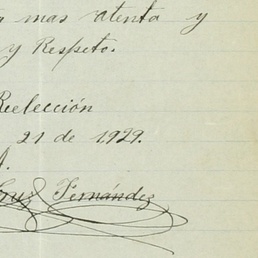 mas atenta y
y Respeto.
Reelección
21 de 1929.
A.
Cruz Fernández